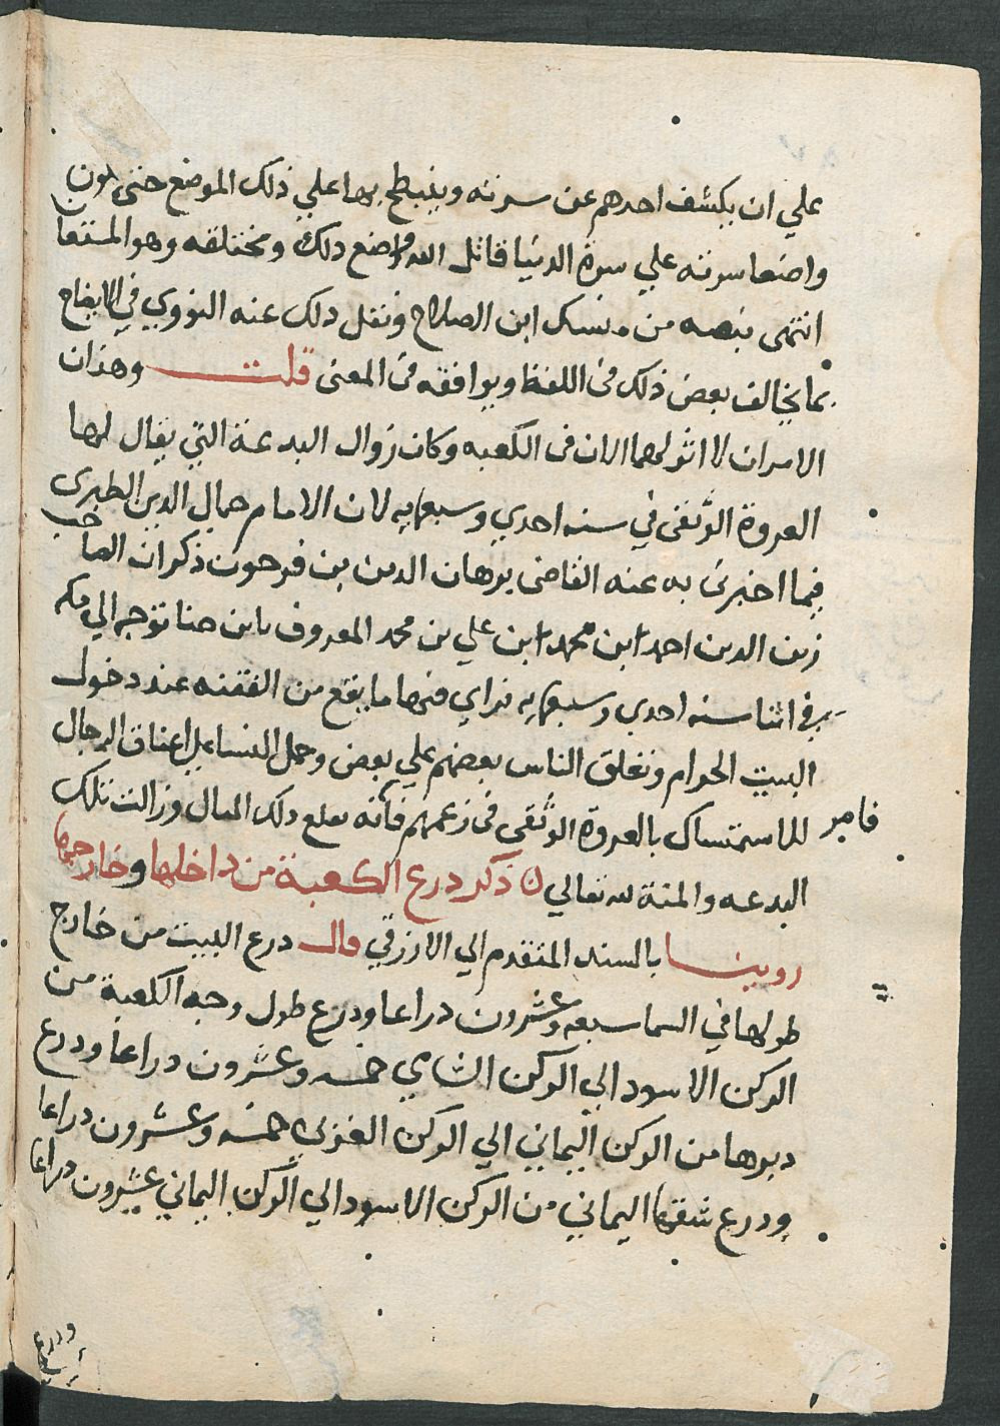 علي ان يكشف احدهم عن سرته وينبطح بها علي ذلك الموضع حتي يكون
واضعا سرته علي سرة الدنيا قاتل الله واضع ذلك ومختلقه وهو المستعان
انتهى بنصه من منسك ابن الصلاح ونقل دلك عنه النووي في الايضاح
بما يخالف بعض ذلك فى اللفظ ويوافقه فى المعنى قلت وهذان
الامران لا اثر لهما الان فى الكعبه وكان زوال البدعة التي يقال لها
العروة الوثقى في سنه احدي وسبعمايه لان الامام جمال الدين الطبرى
فيما اخبرنى به عنه القاضى برهان الدين بن فرحون ذكر ان الصاحب
زين الدين احمد ابن محمد ابن علي بن محمد المعروف بابن حنا توجه الي مكه
في اثنا سنه احدي وسبعمايه فراي فيها ما يقع من الفتنه عند دخول
البيت الحرام وتعلق الناس بعضهم علي بعض وحمل النسا علي اعناق الرجال
للاستمساك بالعروة الوثقى فى زعمهم فانه بقلع دلك المثال وزالت تلك
فامر
البدعه والمنة لله تعالي ذكر درع الكعبة من داخلها وخارجها
روينا بالسند المتقدم الي الازرقي قال درع البيت من خارج
طولها في السما سبعه وعشرون دراعا ودرع طول وجه الكعبة من
الركن الاسود الي الركن الشامي خمسه وعشرون دراعا ودرع
دبرها من الركن اليماني الي الركن الغربي خمسه وعشرون دراعا
ودرع شقها اليماني من الركن الاسود الي الركن اليماني عشرون دراعا
ودرع